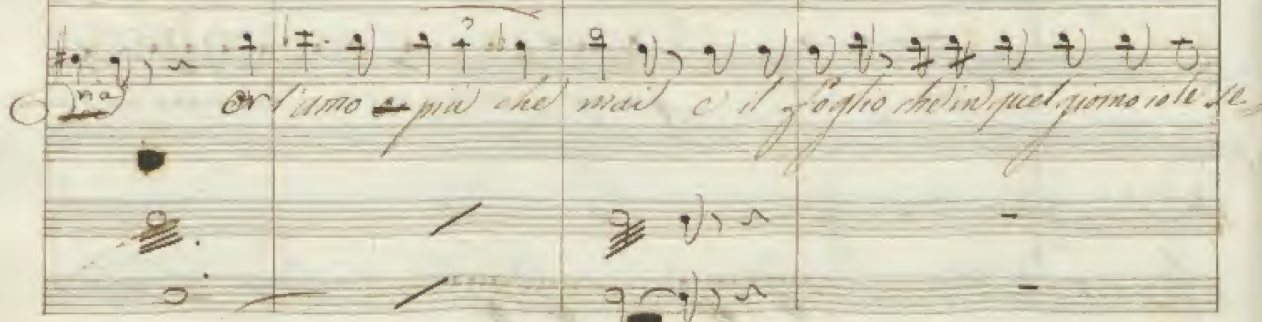 nà or l'amo e più che mai e il foglio che in quel giorno io le